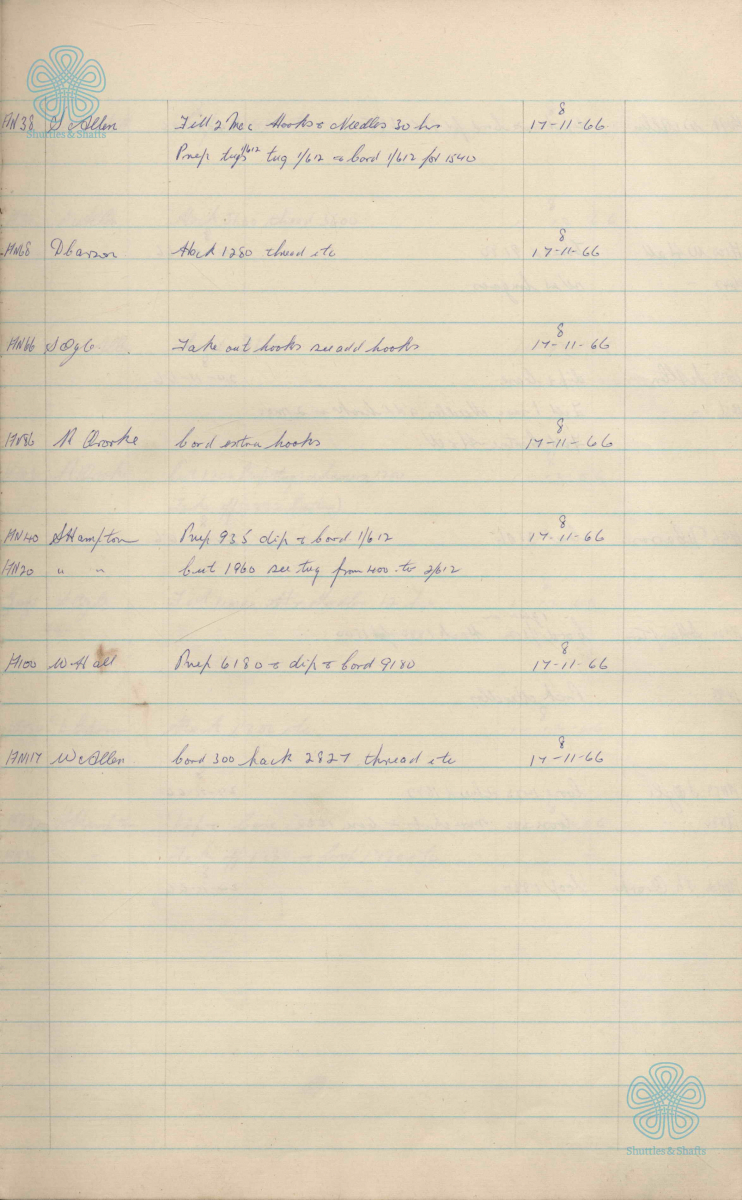 Shuttles & Shafts
8
HN38 S McAllen Fill 2 Mcc Hooks & Needles 30 hrs 17-11-66
Prep tug 1/612 tug 1/612 & cord 1/612 for 1540
8
HN68 Hack 1280 thread etc 17-11-66
8
HN66 S Ogle Take out hooks see add hooks 17-11-66
8
HN86 Cord extra hooks 17-11-66
8
HN40 S Hampton Prep 935 dip & cord 1/612 17-11-66
HN20 " " Cut 1960 see tug from 400 to 2/612
8
H100 W Hall Prep 6180 & dip & cord 9180 17-11-66
8
HN117 W McAllen Cord 300 hack 2827 thread etc 17-11-66
Shuttles & Shafts